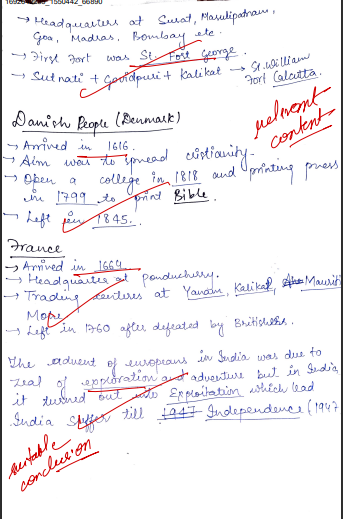 1550442_66890
→ Headquarters at Surat, Masulipatnam,
Goa, Madras, Bombay etc.
→ First Fort was St. Fort George.
→ Sutnati + Govidpuri + Kalikat → St. William
Fort Calcutta.
relevent
content
Danish People (Denmark)
→ Arrived in 1616.
→ Aim was to spread cristianity.
→ Open a college in 1818 and printing press
in 1799 to print Bible.
→ Left in 1845.
France
→ Arrived in 1664.
→ Headquarter at Ponducherry.
→ Trading centures at Yanam, Kalikat, Mauriti
→ Left in 1760 after defeated by Britishers.
The advent of europeans in India was due to
zeal of exploration and adventure but in India
it turned out into Exploitation which lead
India suffer till 1947 Independence (1947
suitable
conclusion